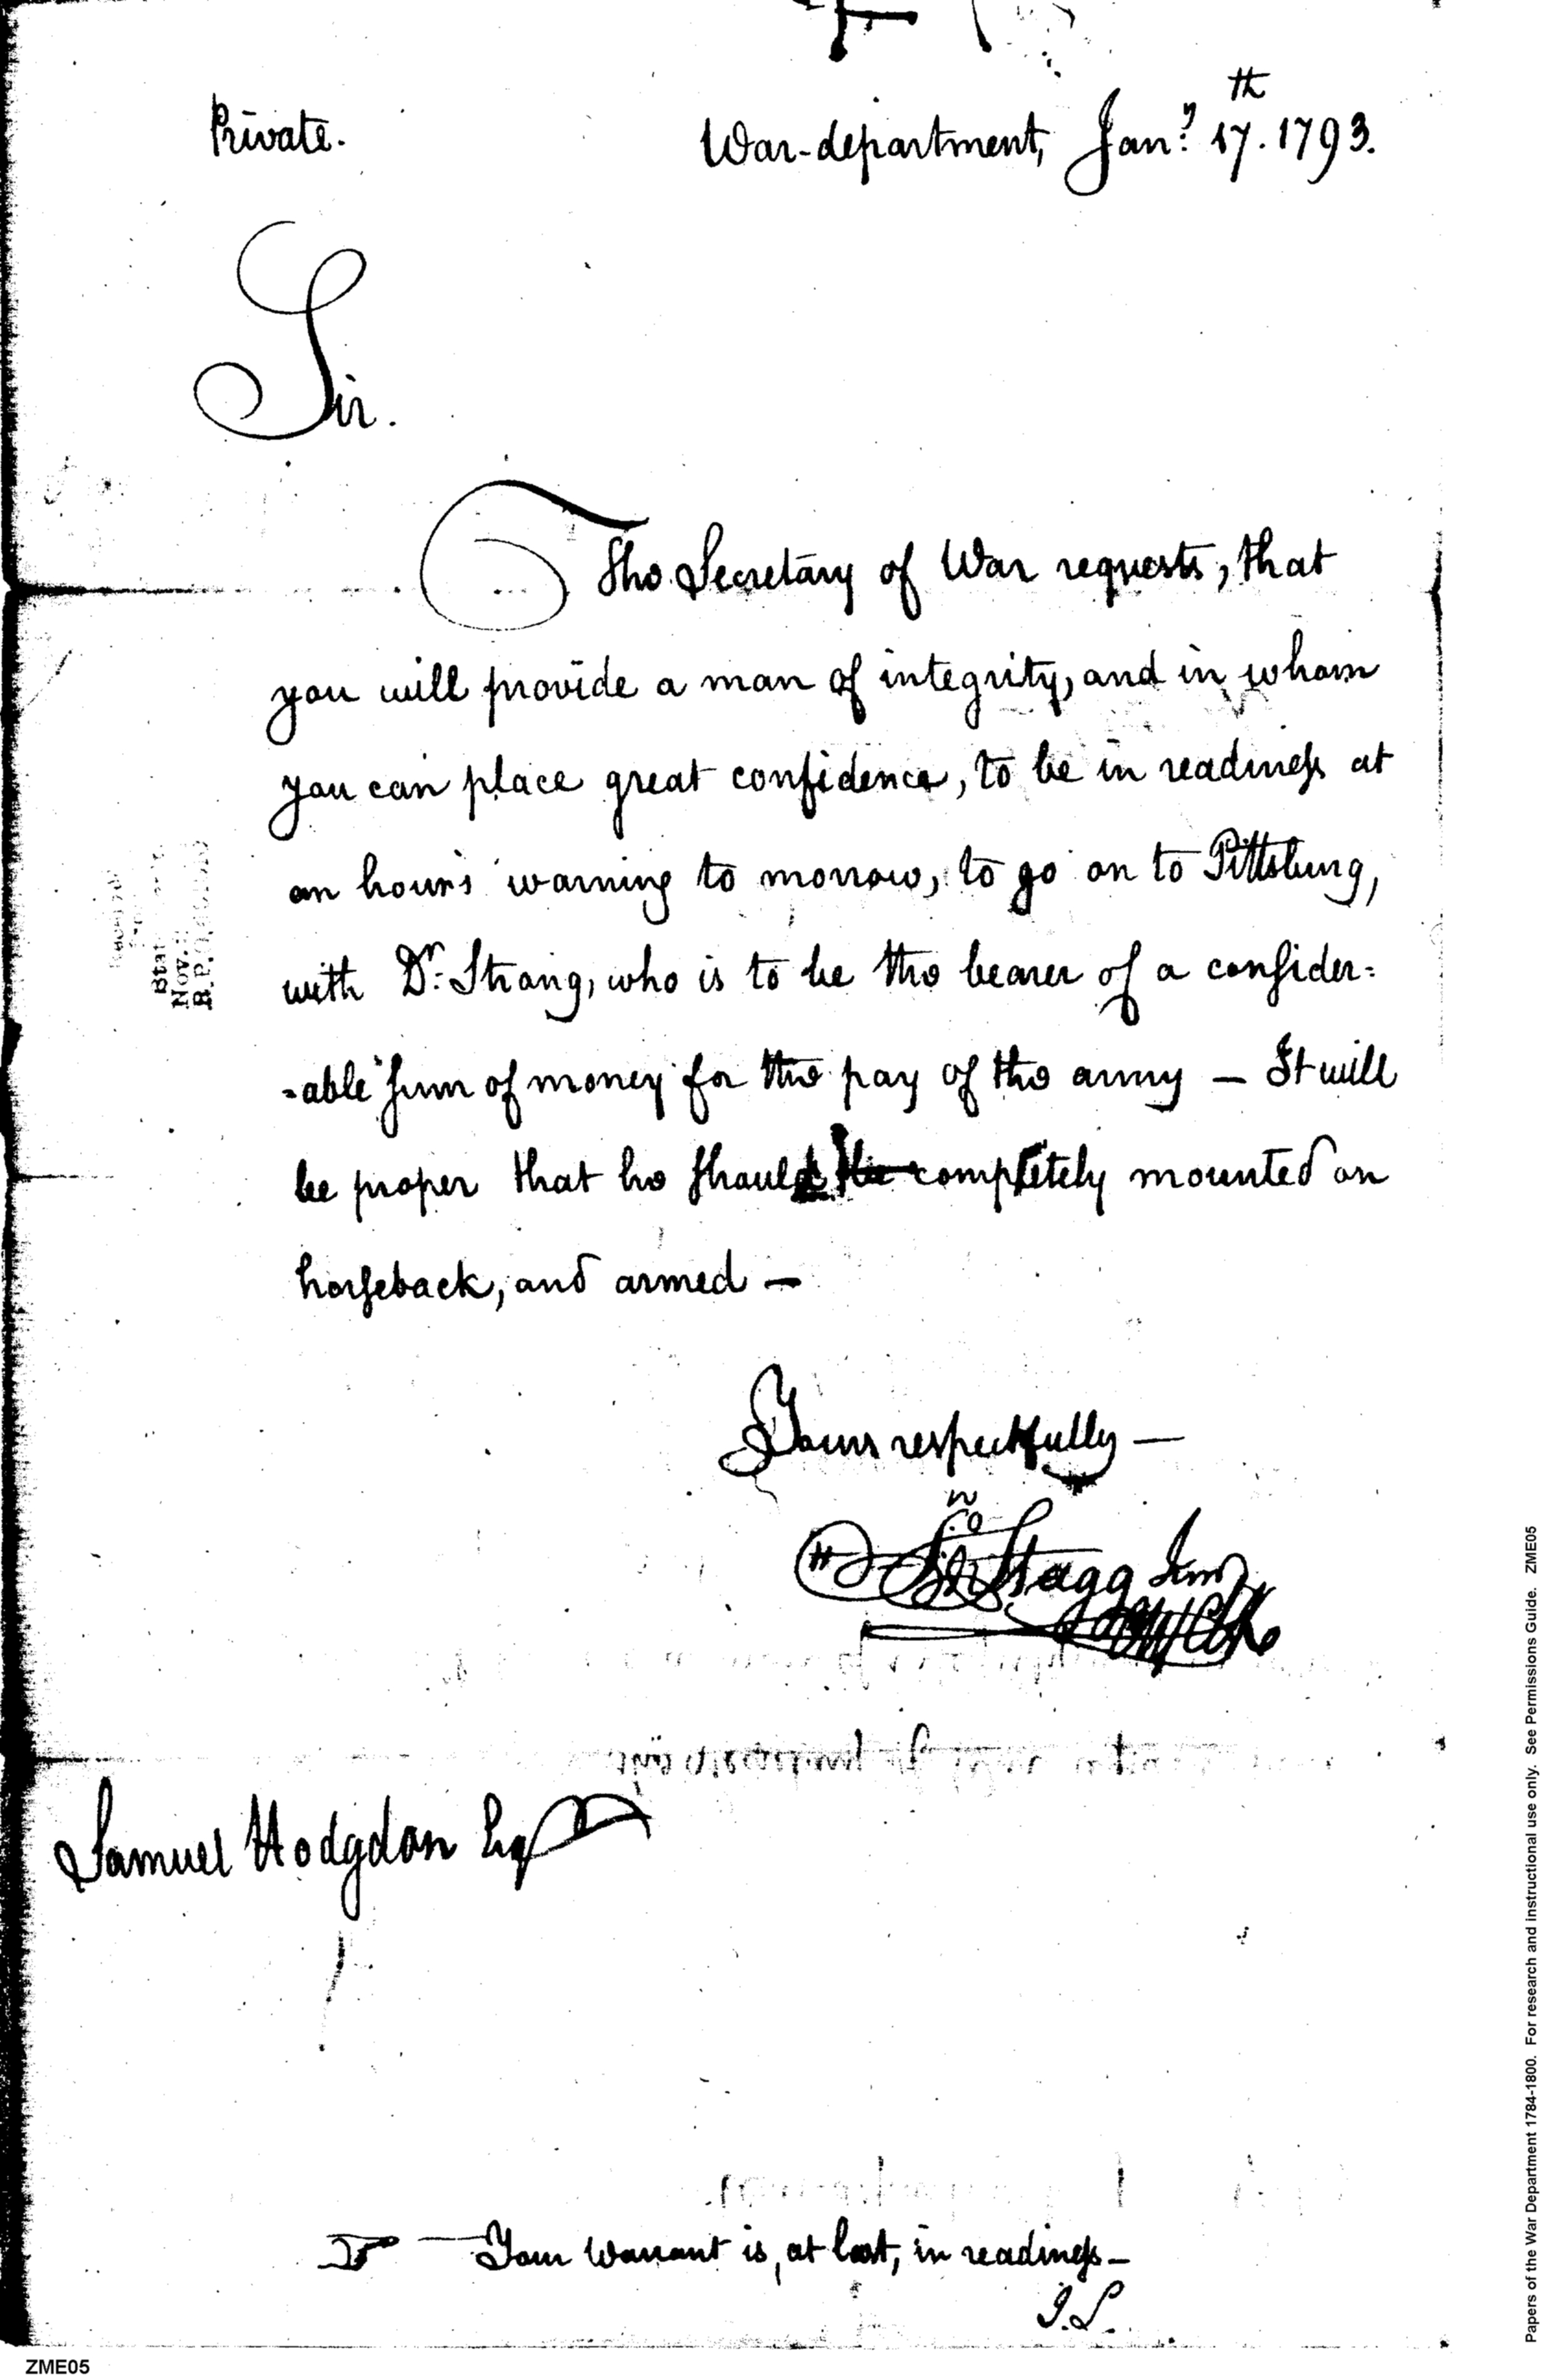 Private.
War-department, Jan.y 17.th 1793.
Sir.
The Secretary of War requests, that
you will provide a man of integrity, and in whom
you can place great confidence, to be in readiness at
an hours warning to morrow, to go on to Pittsburg,
with Dr. Strong, who is to be the bearer of a consider=
=able sum of money for the pay of the army — It will
be proper that he should be completely mounted on
horseback, and armed —
Yours respectfully —
Jno Stagg Junr
Samuel Hodgdon Esq
Stat
Nov.
Your Warrant is, at last, in readiness —
J.S.
Papers of the War Department 1784-1800. For research and instructional use only. See Permissions Guide. ZME05
ZME05